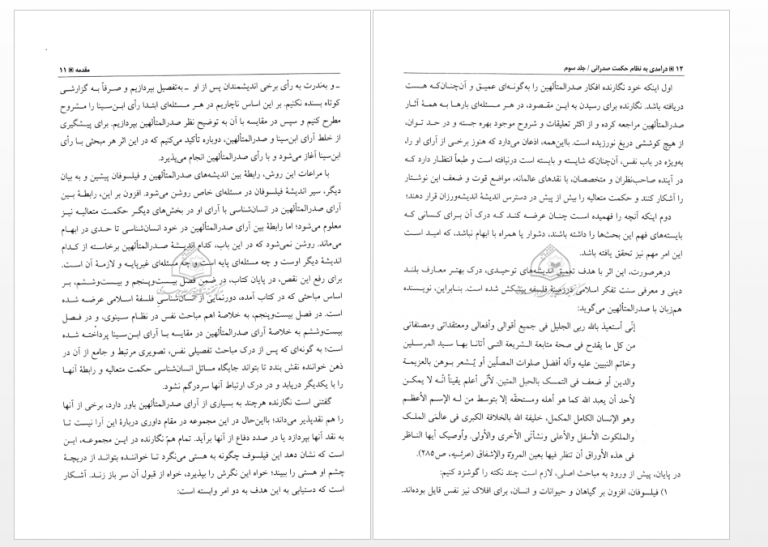 مقدمه ▣ ۱۱
ـ و به‌ندرت به رأی برخی اندیشمندان پس از او ـ به‌تفصیل بپردازیم و صرفاً به گزارشی
کوتاه بسنده نکنیم. بر این اساس ناچاریم در هر مسئله‌ای ابتدا رأی ابن‌سینا را مشروح
مطرح کنیم و سپس در مقایسه با آن به توضیح نظر صدرالمتألهین بپردازیم. برای پیشگیری
از خلط آرای ابن‌سینا و صدرالمتألهین، دوباره تأکید می‌کنیم که در این اثر هر مبحثی با رأی
ابن‌سینا آغاز می‌شود و با رأی صدرالمتألهین انجام می‌پذیرد.
با مراعات این روش، رابطهٔ بین اندیشه‌های صدرالمتألهین و فیلسوفان پیشین و به بیان
دیگر، سیر اندیشهٔ فیلسوفان در مسئله‌ای خاص روشن می‌شود. افزون بر این، رابطهٔ بین
آرای صدرالمتألهین در انسان‌شناسی با آرای او در بخش‌های دیگر حکمت متعالیه نیز
معلوم می‌شود؛ اما رابطهٔ بین آرای صدرالمتألهین در خود انسان‌شناسی تا حدی در ابهام
می‌ماند. روشن نمی‌شود که در این باب، کدام اندیشهٔ صدرالمتألهین برخاسته از کدام
اندیشهٔ دیگر اوست و چه مسئله‌ای پایه است و چه مسئله‌ای غیرپایه و لازمهٔ آن است.
برای رفع این نقص، در پایان کتاب، در ضمن فصل بیست‌وپنجم و بیست‌وششم، بر
اساس مباحثی که در کتاب آمده، دورنمایی از انسان‌شناسی فلسفهٔ اسلامی عرضه شده
است. در فصل بیست‌وپنجم، به خلاصهٔ اهم مباحث نفس در نظام سینوی، و در فصل
بیست‌وششم به خلاصهٔ آرای صدرالمتألهین در مقایسه با آرای ابن‌سینا پرداخته شده
است؛ به گونه‌ای که پس از درک مباحث تفصیلی نفس، تصویری مرتبط و جامع از آن در
ذهن خواننده نقش بندد تا بتواند جایگاه مسائل انسان‌شناسی حکمت متعالیه و رابطهٔ آنها
را با یکدیگر دریابد و در درک ارتباط آنها سردرگم نشود.
گفتنی است نگارنده هرچند به بسیاری از آرای صدرالمتألهین باور دارد، برخی از آنها
را هم نقدپذیر می‌داند؛ بااین‌حال در این مجموعه در مقام داوری دربارهٔ این آرا نیست تا
به نقد آنها بپردازد یا در صدد دفاع از آنها برآید. تمام همّ نگارنده در این مجموعه، این
است که نشان دهد این فیلسوف چگونه به هستی می‌نگرد تا خواننده بتواند از دریچهٔ
چشم او هستی را ببیند؛ خواه این نگرش را بپذیرد، خواه از قبول آن سر باز زند. آشکار
است که دستیابی به این هدف به دو امر وابسته است:
۱۲ ▣ درآمدی به نظام حکمت صدرائی / جلد سوم
اول اینکه خود نگارنده افکار صدرالمتألهین را به‌گونه‌ای عمیق و آن‌چنان‌که هست
دریافته باشد. نگارنده برای رسیدن به این مقصود، در هر مسئله‌ای بارها به همهٔ آثار
صدرالمتألهین مراجعه کرده و از اکثر تعلیقات و شروح موجود بهره جسته و در حد توان،
از هیچ کوششی دریغ نورزیده است. بااین‌همه، اذعان می‌دارد که هنوز برخی از آرای او را،
به‌ویژه در باب نفس، آن‌چنان‌که شایسته و بایسته است درنیافته است و طبعاً انتظار دارد که
در آینده صاحب‌نظران و متخصصان، با نقدهای عالمانه، مواضع قوت و ضعف این نوشتار
را آشکار کنند و حکمت متعالیه را بیش از پیش در دسترس اندیشهٔ اندیشه‌ورزان قرار دهند؛
دوم اینکه آنچه را فهمیده است چنان عرضه کند که درک آن برای کسانی که
بایسته‌های فهم این بحث‌ها را داشته باشند، دشوار یا همراه با ابهام نباشد، که امید است
این امر مهم نیز تحقق یافته باشد.
درهرصورت، این اثر با هدف تعمیق اندیشه‌های توحیدی، درک بهتر معارف بلند
دینی و معرفی سنت تفکر اسلامی در زمینهٔ فلسفه پیشکش شده است. بنابراین، نویسنده
هم‌زبان با صدرالمتألهین می‌گوید:
إنّی أستعیذ بالله ربی الجلیل فی جمیع أقوالی وأفعالی ومعتقداتی ومصنفاتی
من کل ما یقدح فی صحة متابعة الشریعة التی أتانا بها سید المرسلین
وخاتم النبیین علیه وآله أفضل صلوات المصلّین أو یُشعر بوهن بالعزیمة
والدین أو ضعف فی التمسک بالحبل المتین. لأنّی أعلم یقیناً أنّه لا یمکن
لأحد أن یعبد الله کما هو أهله ومستحقّه إلا بتوسط من له الإسم الأعظم
وهو الإنسان الکامل المکمل، خلیفة الله بالخلافة الکبری فی عالَمَی الملک
والملکوت الأسفل والأعلی ونشأتَی الأخری والأولی. وأوصیک أیها الناظر
فی هذه الأوراق أن تنظر فیها بعین المروّة والإشفاق (عرشیه، ص۲۸۵).
در پایان، پیش از ورود به مباحث اصلی، لازم است چند نکته را گوشزد کنیم:
۱) فیلسوفان، افزون بر گیاهان و حیوانات و انسان، برای افلاک نیز نفس قایل بوده‌اند.